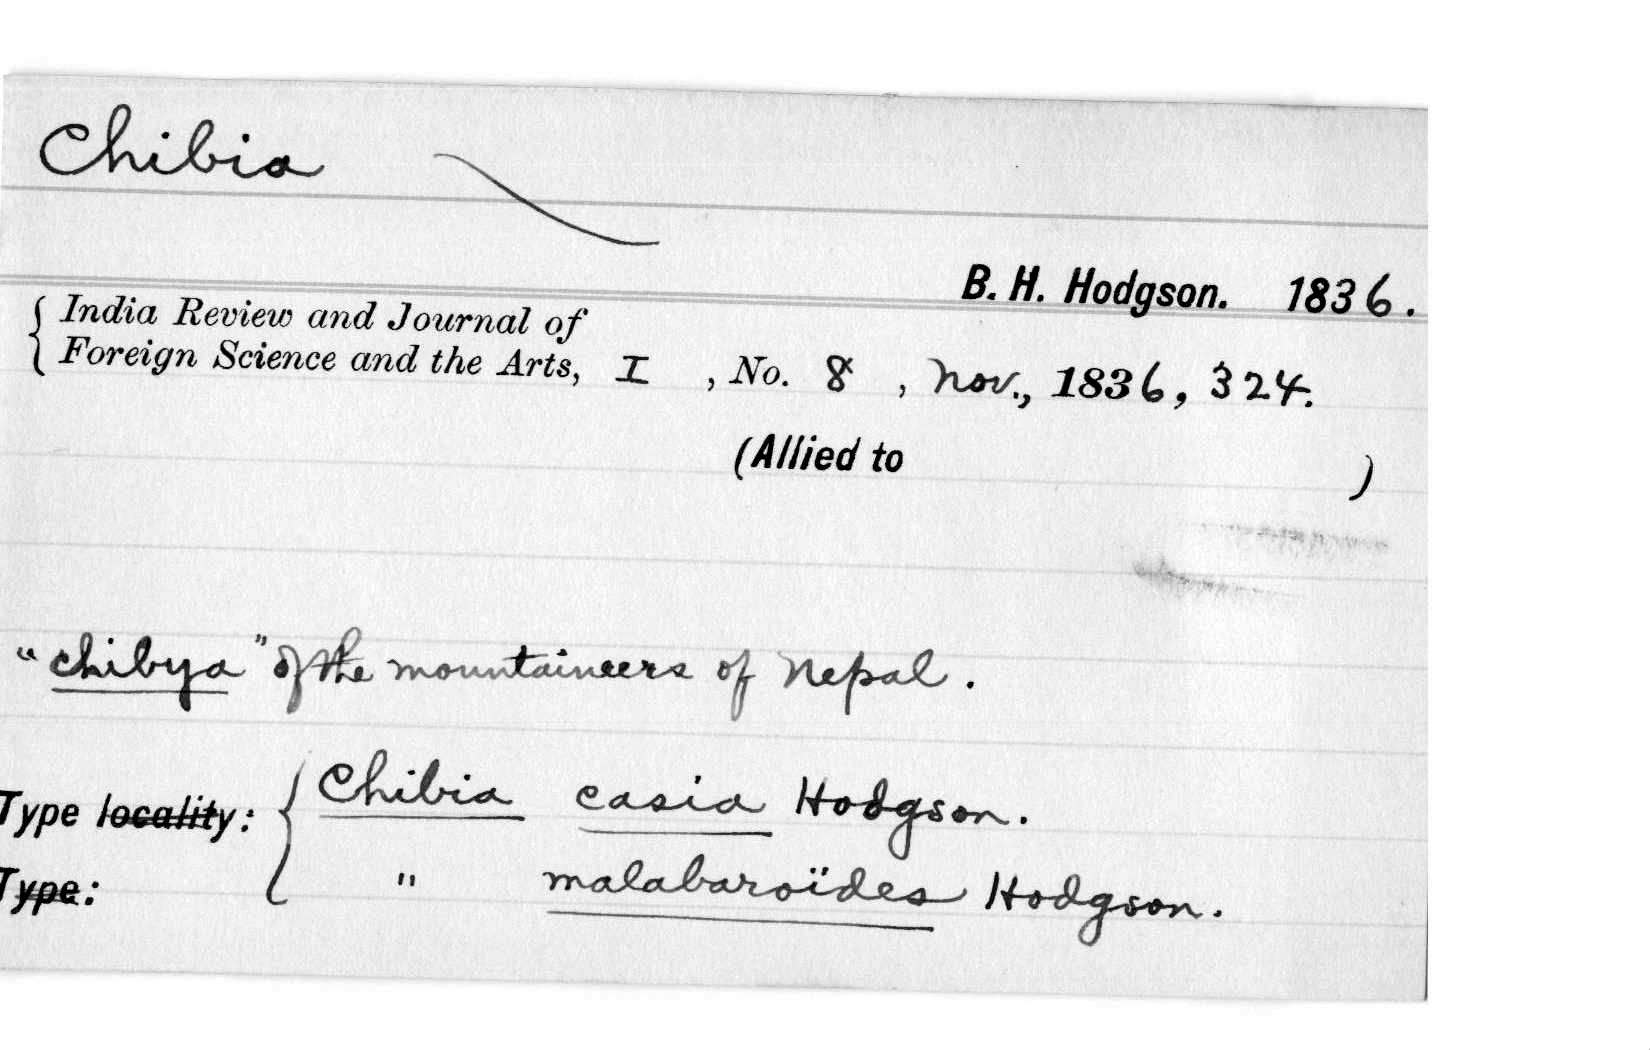 Chibia
B. H. Hodgson. 1836.
India Review and Journal of
Foreign Science and the Arts, I , No. 8 , Nov., 1836, 324.
(Allied to )
"chibya" of the mountaineers of Nepal.
Type locality: { Chibia casia Hodgson.
Type: " malabaroïdes Hodgson.